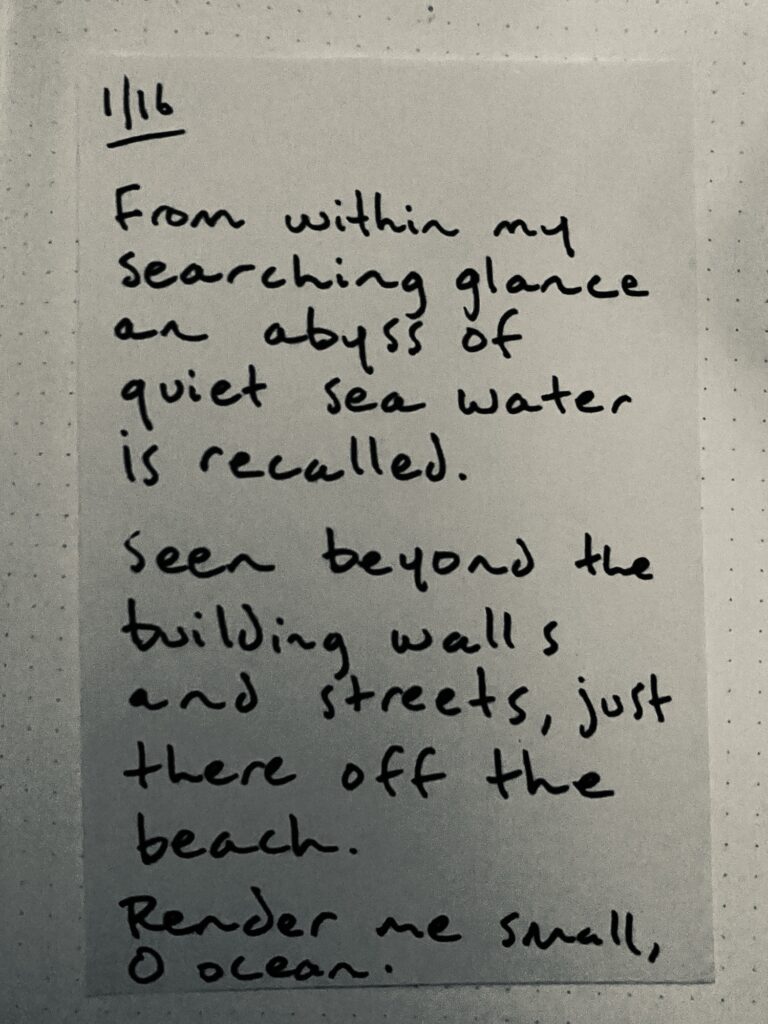 1/16
From within my
searching glance
an abyss of
quiet sea water
is recalled.
Seen beyond the
building walls
and streets, just
there off the
beach.
Render me small,
O ocean.